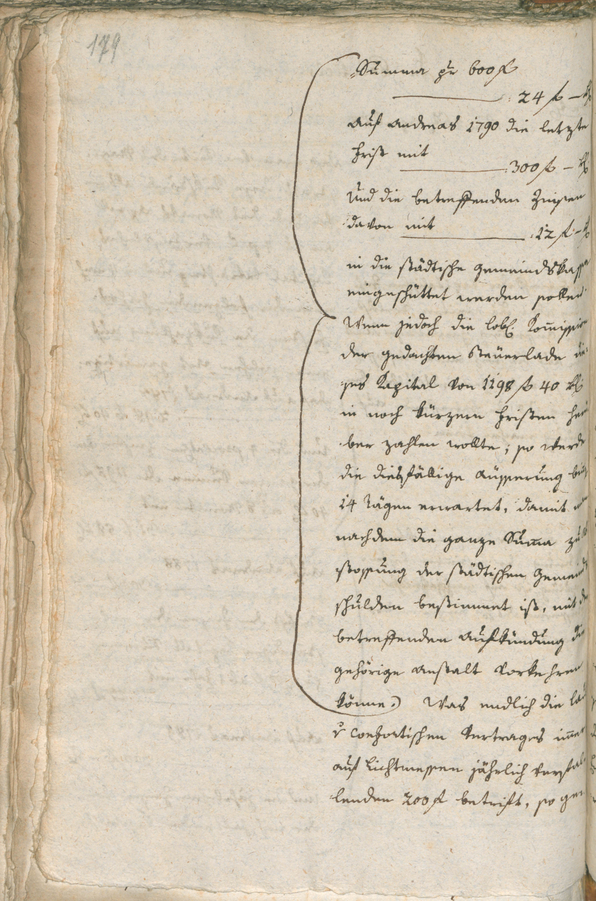 179
Summa pr 600 f
24 f –
auf Andreas 1790 die letzte
Frist mit
300 f –
Und die betreffenden Zinsen
davon mit
12 f –
in die städtische Gemeindskassa
eingeschüttet werden sollen.
Wenn jedoch die löbl.
der gedachten Steuerlade
ses Kapital von 1198 f 40 xr
in noch kürzern Fristen
ber zahlen wollte; so werde
die diesfällige Äusserung
14 Tägen erwartet, damit
nachdem die ganze Summa zu
stossung der städtischen Gemeind
schulden bestimmet ist, mit
betreffenden Aufkündung die
gehörige Anstalt vorkehren
könne.) Was endlich die
Vertrages
auf Lichtmessen jährlich
lenden 200 f betrift, so